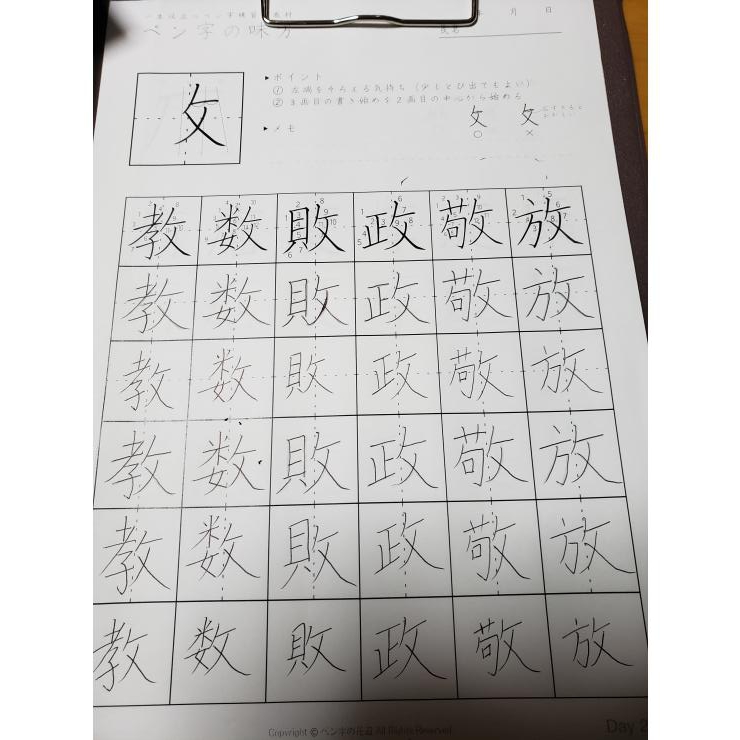 ペン字の味方
月 日
氏名
攵
▶ポイント
① 左端をそろえる気持ち（少しとび出てもよい）
② 3画目の書き始めを2画目の中心から始める
▶メモ
攵 攵
○ ×
教 数 敗 政 敬 放
教 数 敗 政 敬 放
教 数 敗 政 敬 放
教 数 敗 政 敬 放
教 数 敗 政 敬 放
教 数 敗 政 敬 放
Copyright © ペン字の All Rights Reserved
Day 2